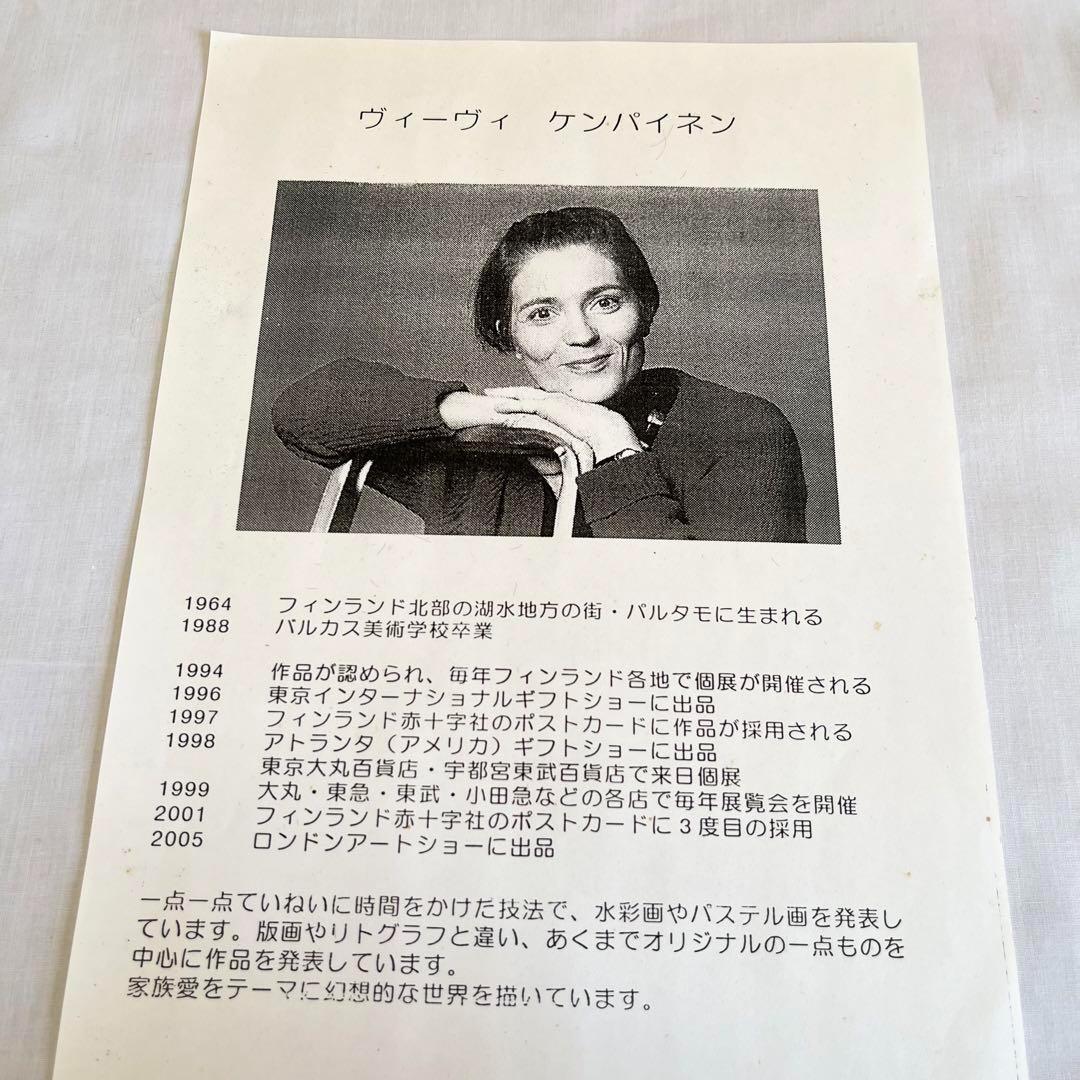 ヴィーヴィ　ケンパイネン
1964　フィンランド北部の湖水地方の街・パルタモに生まれる
1988　バルカス美術学校卒業
1994　作品が認められ、毎年フィンランド各地で個展が開催される
1996　東京インターナショナルギフトショーに出品
1997　フィンランド赤十字社のポストカードに作品が採用される
1998　アトランタ（アメリカ）ギフトショーに出品
東京大丸百貨店・宇都宮東武百貨店で来日個展
1999　大丸・東急・東武・小田急などの各店で毎年展覧会を開催
2001　フィンランド赤十字社のポストカードに３度目の採用
2005　ロンドンアートショーに出品
一点一点ていねいに時間をかけた技法で、水彩画やパステル画を発表し
ています。版画やリトグラフと違い、あくまでオリジナルの一点ものを
中心に作品を発表しています。
家族愛をテーマに幻想的な世界を描いています。